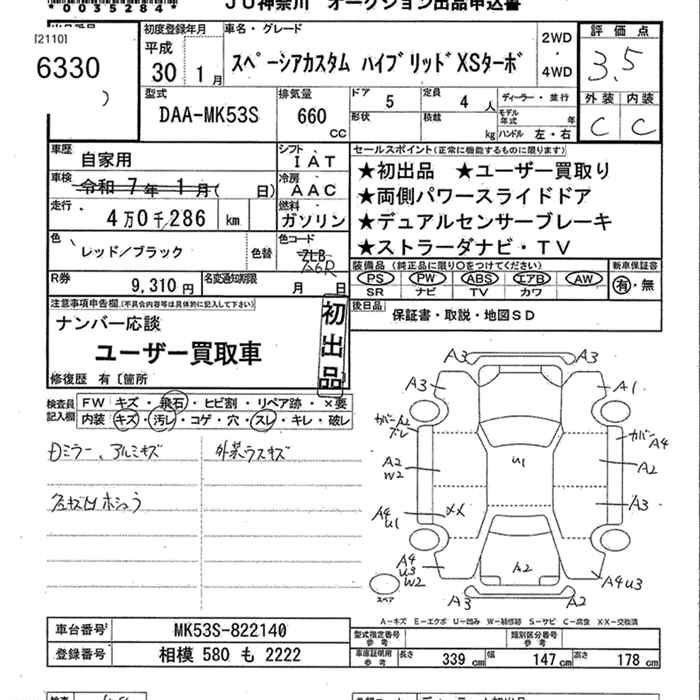 *0035284*
JU神奈川 オークション出品申込書
[2110]
6330
初度登録年月
平成
30年 1月
車名・グレード
スペーシアカスタム ハイブリッドXSターボ
2WD
・
4WD
評価点
3.5
外装 内装
C C
型式
DAA-MK53S
排気量
660
CC
ドア 5
形状
定員 4 人
積載 kg
ディーラー・並行
モデル年式 年
ハンドル 左・右
車歴
自家用
シフト
IAT
車検
令和 7年 1月( 日)
冷房
AAC
走行
4万0千286 km
燃料
ガソリン
色
レッド/ブラック
色替
色コード
ZLB
A6R
R券
9,310円
名変通知期限
月 日
セールスポイント(正常に機能するものに限ります)
★初出品 ★ユーザー買取り
★両側パワースライドドア
★デュアルセンサーブレーキ
★ストラーダナビ・TV
装備品(純正品に限り○をつけてください)
PS PW ABS エアB AW
SR ナビ TV カワ
新車保証書
有・無
後日品
保証書・取説・地図SD
注意事項申告欄(不具合内容等は具体的に記入して下さい)
ナンバー応談
ユーザー買取車
初出品
修復歴 有〔箇所
検査員
記入欄
FW キズ・飛石・ヒビ割・リペア跡・×要
内装 キズ・汚レ・コゲ・穴・スレ・キレ・破レ
Dミラー、アルミキズ
外装ラスキズ
A3 A3
A3 A1
カバー A2
ズレ
カバー A4
A2
W2
U1
A2
A4
U1
XX
A3
A4
U3
W2
A2
A4 U3
スペア
A3 A2
A-キズ E-エクボ U-凹み W-補修跡 S-サビ C-腐食 XX-交換済
車台番号
MK53S-822140
登録番号
相模 580 も 2222
型式指定番号
参考
類別区分番号
参考
車庫証明用
参考
長さ 339 cm
幅 147 cm
高さ 178 cm